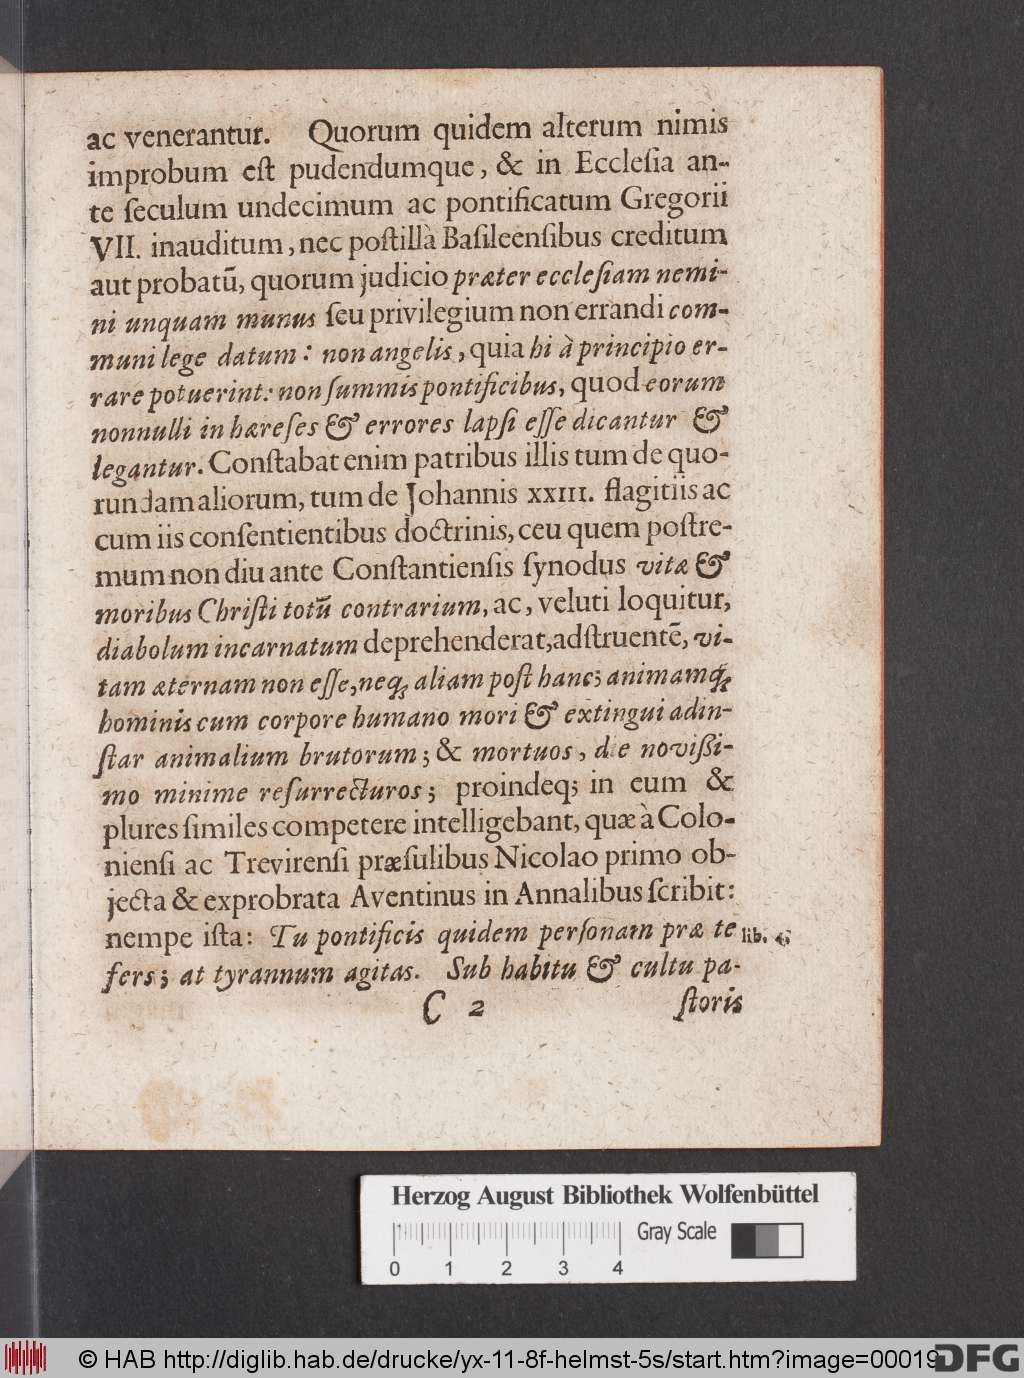 ac venerantur. Quorum quidem alterum nimis
improbum est pudendumque, & in Ecclesia an-
te seculum undecimum ac pontificatum Gregorii
VII. inauditum, nec postillà Basileensibus creditum
aut probatũ, quorum judicio præter ecclesiam nemi-
ni unquam munus seu privilegium non errandi com-
muni lege datum: non angelis, quia hi à principio er-
rare potuerint: non summis pontificibus, quod eorum
nonnulli in hæreses & errores lapsi esse dicantur &
legantur. Constabat enim patribus illis tum de quo-
rundam aliorum, tum de Johannis XXIII. flagitiis ac
cum iis consentientibus doctrinis, ceu quem postre-
mum non diu ante Constantiensis synodus vitæ &
moribus Christi totũ contrarium, ac, veluti loquitur,
diabolum incarnatum deprehenderat, adstruentẽ, vi-
tam æternam non esse, neq; aliam post hanc; animamq;
hominis cum corpore humano mori & extingui ad in-
star animalium brutorum; & mortuos, die novissi-
mo minime resurrecturos; proindeq; in eum &
plures similes competere intelligebant, quæ à Colo-
niensi ac Trevirensi præsulibus Nicolao primo ob-
jecta & exprobrata Aventinus in Annalibus scribit:
nempe ista: Tu pontificis quidem personam præ te
lib. 4
fers; at tyrannum agitas. Sub habitu & cultu pa-
C 2 storis
Herzog August Bibliothek Wolfenbüttel
Gray Scale
0 1 2 3 4
© HAB http://diglib.hab.de/drucke/yx-11-8f-helmst-5s/start.htm?image=00019
DFG